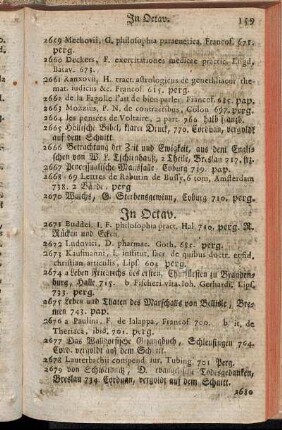 In Octav. 159
2659 Mechovii, G. philosophia paraenetica, Francof. 671.
perg.
2660 Deckers, F. exercitationes medicae practic. Lugd.
Batav. 673.
2661 Ranzovii, H. tract. astrologicus de genethliacor. the-
mat. iudiciis &c. Francof. 615. perg.
2662 de la Fagolle l'art de bien parler, Francof. pap.
2663 Colon 697. perg.
2664 les pensées de Voltaire, 2 part. 760 halb
2665 Höllische Bibel, klarer Druck, 770. Corduan, vergoldt
auf dem Schnitt.
2666 Betrachtung der Zeit und Ewigkeit, aus dem Engli-
schen von W. F. Tschirnhauß, 2 Theile, Breslau 717.
2667 Pennsylvanische Coburg 739. pap.
2668-69 Lettres de Rabutin de Bussy, 6 tom. Amsterdam
738. 2 Bände. perg
2670 Walchs, G. Sterbensgewinn, Coburg 710. perg.
In Octav.
2671 Buddei, I. F. philosophia pract. Hal 710. perg. R.
Rücken und Ecken.
2672 Ludovici, D. pharmac. Goth. perg.
2673 Kaufmanni, I. institut. de quibusd.
christian. articulis, Lips. 604 perg.
2674 a Leben Friedrichs des ersten, Churfürsten zu Branden-
burg, Halle 715. b Fischeri vita Joh. Gerhardi, Lips.
733. perg.
2675 Leben und Thaten des Marschalls von Bellisle, Bre-
men 743. pap.
2676 a Paulini, F. de Ialappa, Francof 700. b ii, de
Theriack, ibid. 701. perg.
2677 Das Gesangbuch, Schleusingen 764.
Cord. vergoldt auf dem Schnitt.
2678 Lauterbachii compend. iur. Tubing. 701 Perg.
2679 von Schweinitz, D. evangelische Todesgedanken,
Breslau 734 Corduan, vergoldt auf dem Schnitt.
2680